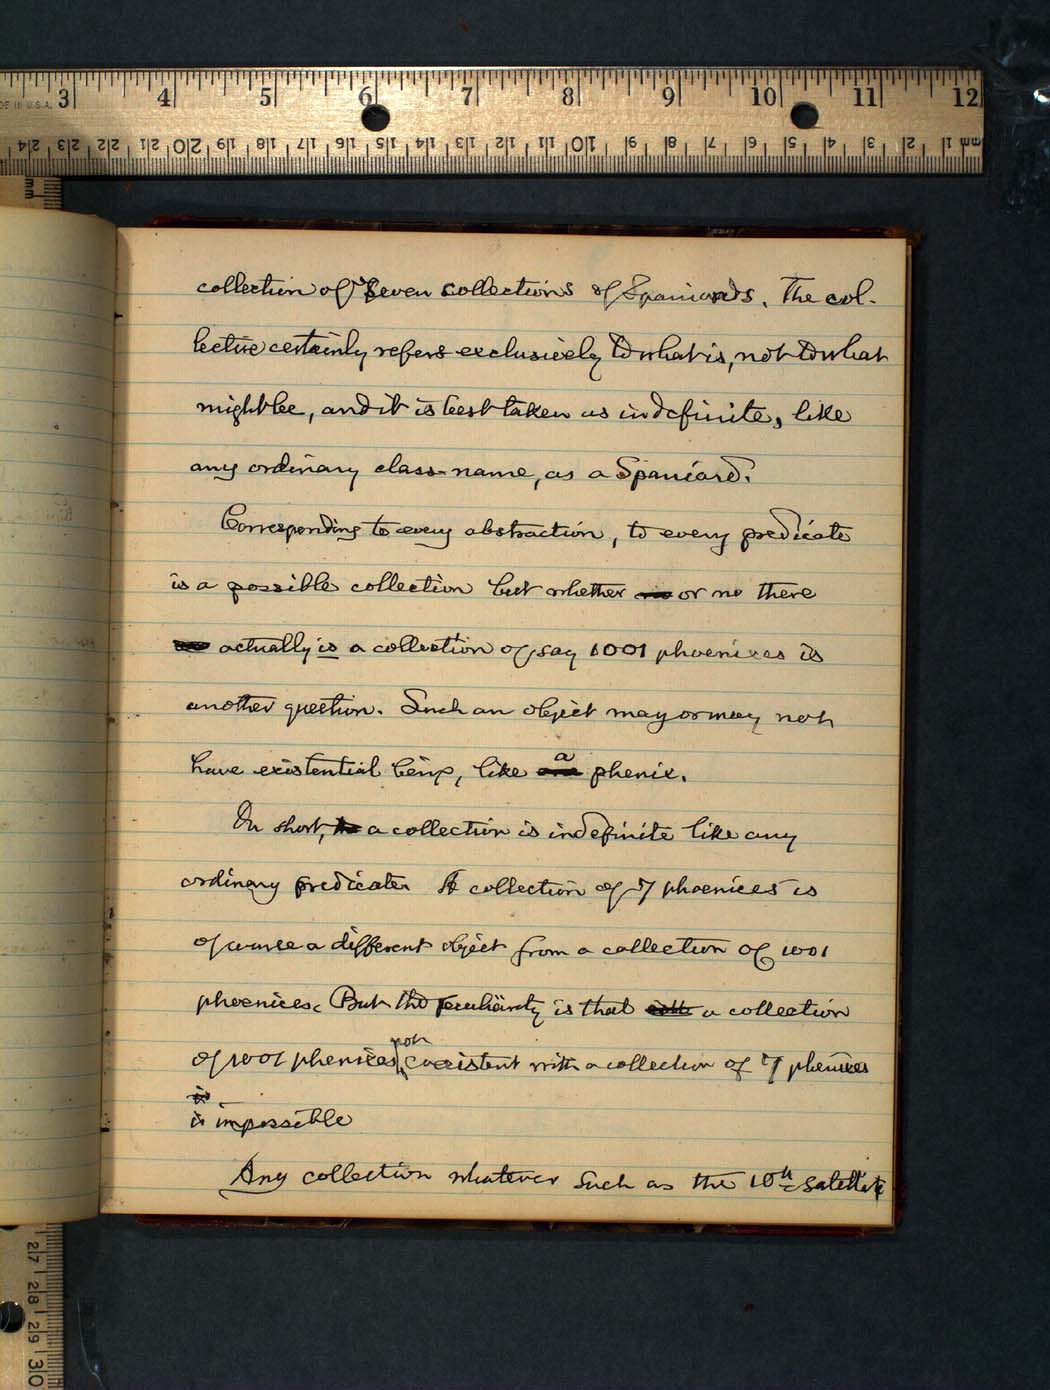 MADE IN U.S.A. 3 4 5 6 7 8 9 10 11 12
24 23 22 21 20 19 18 17 16 15 14 13 12 11 10 9 8 7 6 5 4 3 2 1 mm
mm
collection of seven collections of Spaniards. The col-
lective certainly refers exclusively to what is, not to what
might be, and it is best taken as indefinite, like
any ordinary class-name, as a Spaniard.
Corresponding to every abstraction, to every predicate
is a possible collection but whether or no there
actually is a collection of say 1001 phoenixes is
another question. Such an object may or may not
have existential being, like a phenix.
In short, a collection is indefinite like any
ordinary predicate. A collection of 7 phoenices is
of course a different object from a collection of 1001
phoenices. But the peculiarity is that a collection
of 1001 phenices non
coexistent with a collection of 7 phenices
is
is impossible
Any collection whatever such as the 10th satellite
27 28 29 30